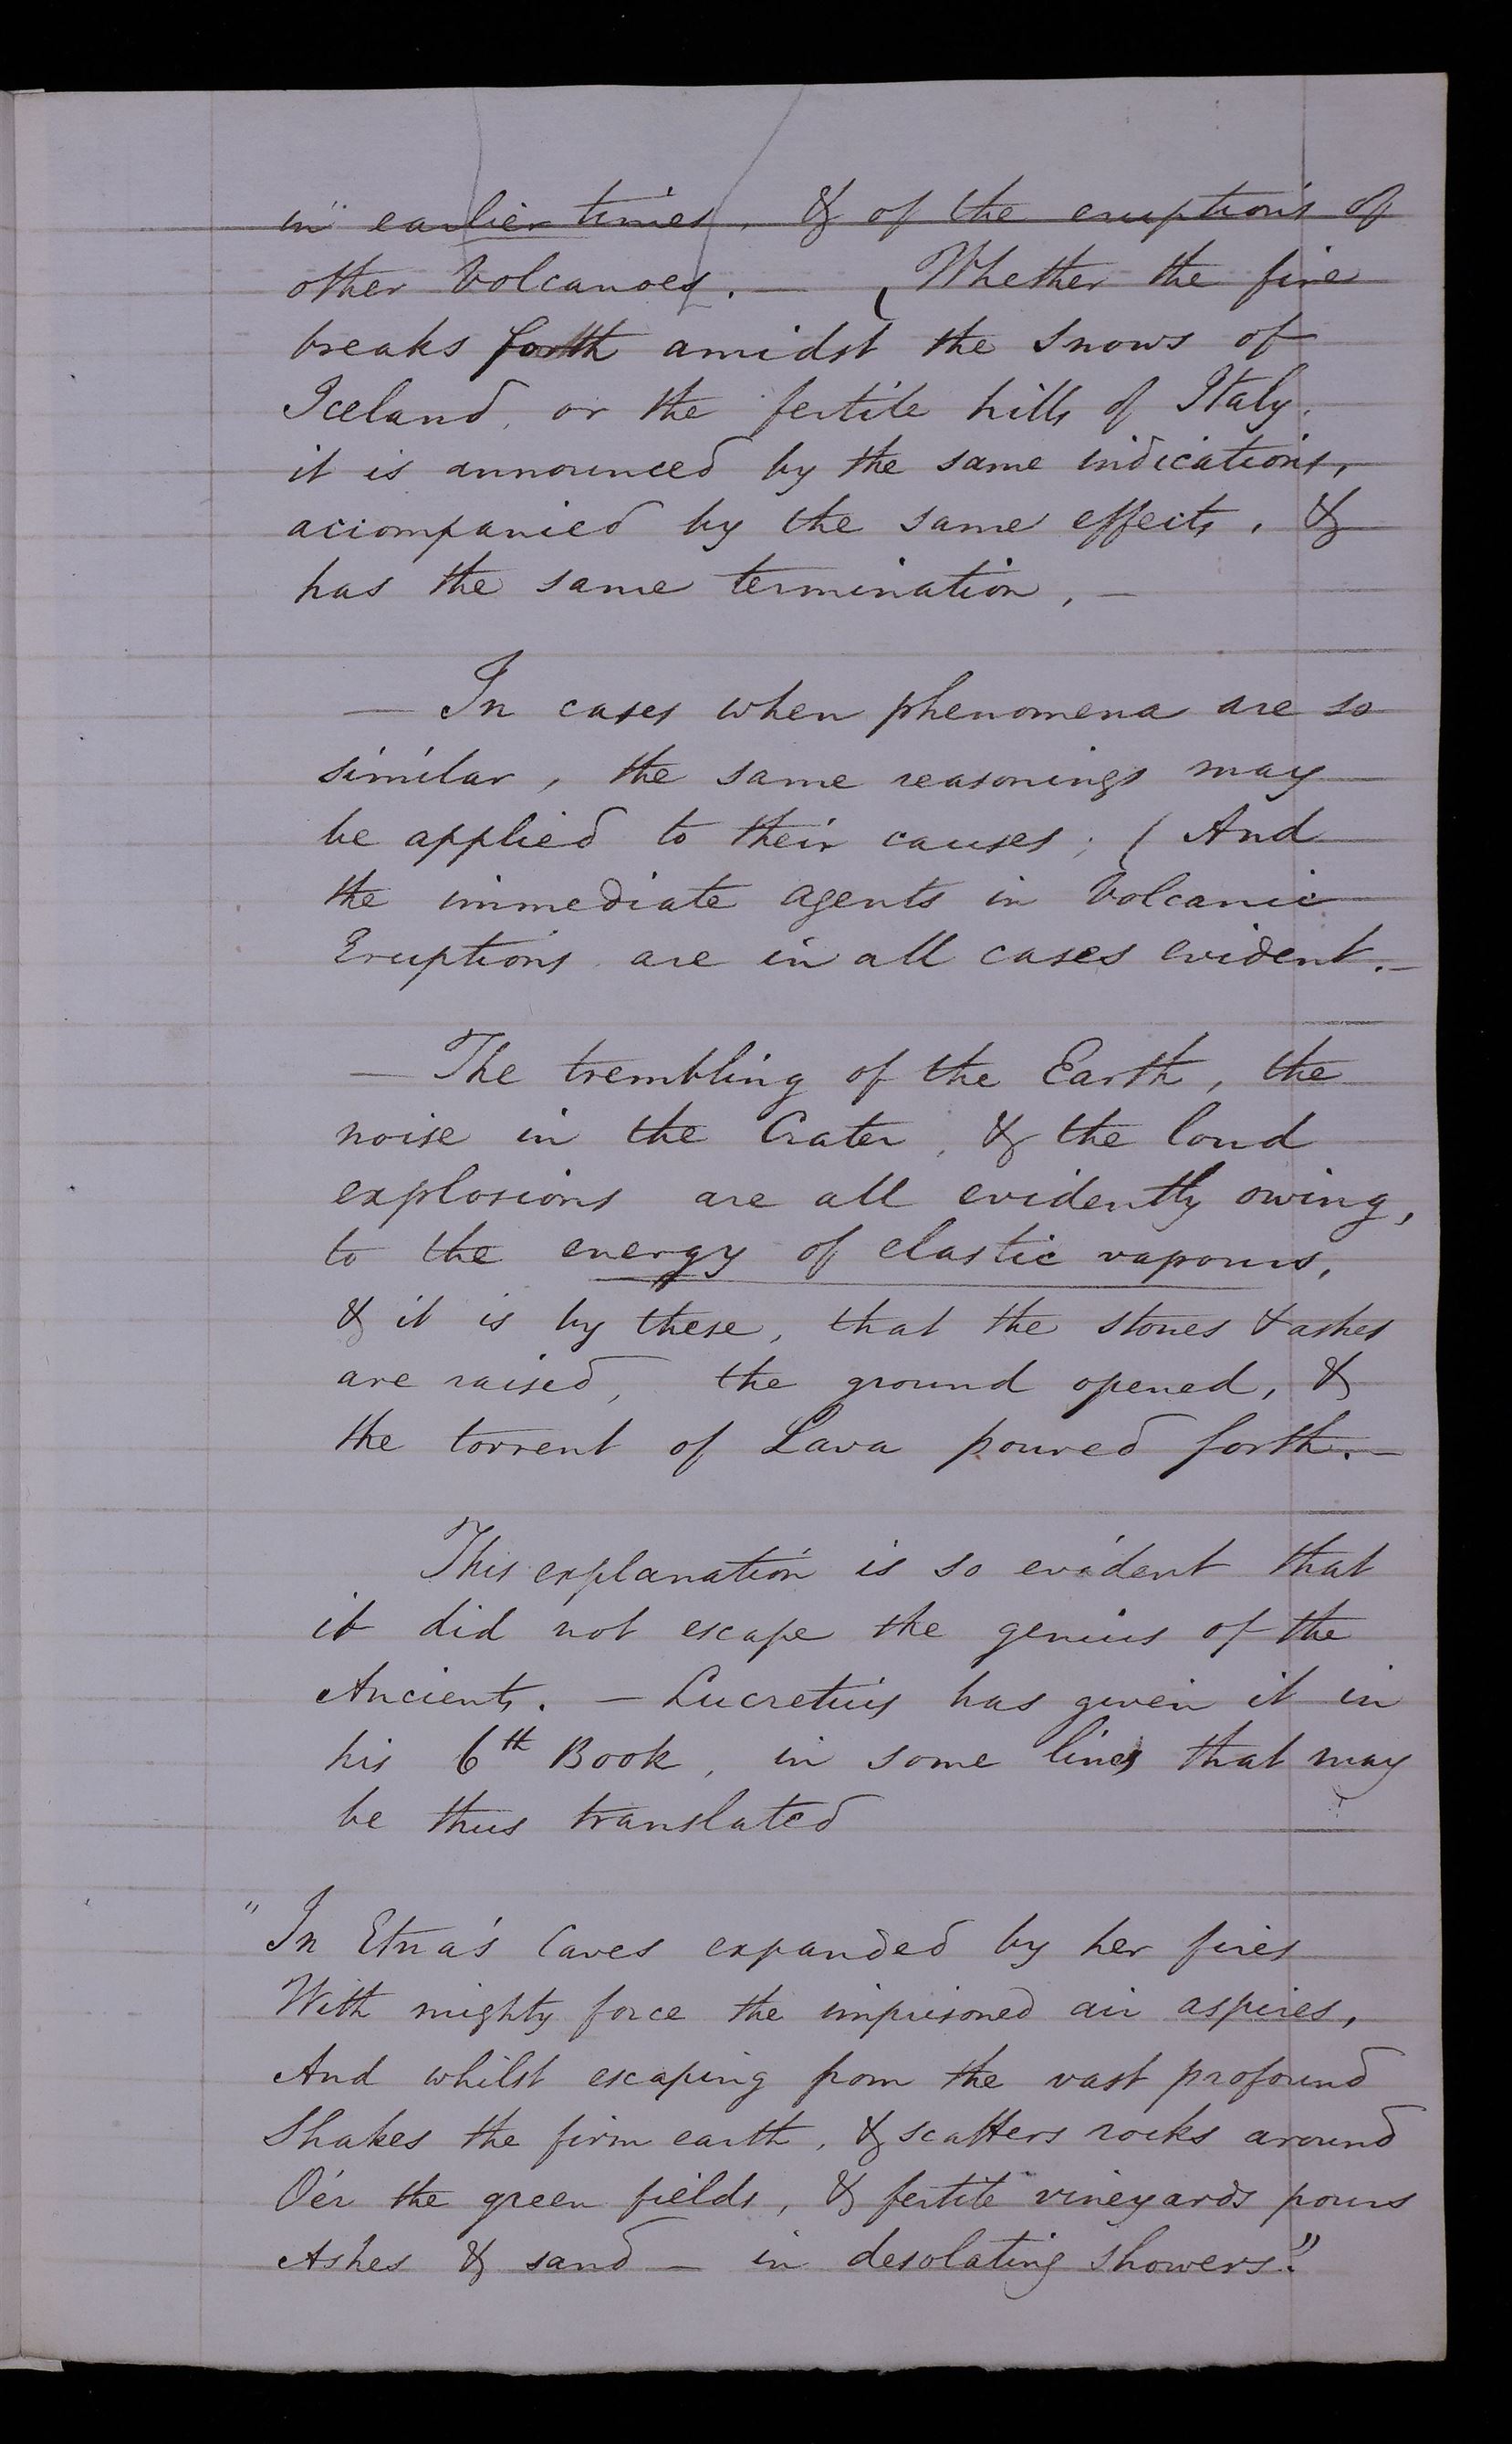 in earlier times, & of the eruptions of
other Volcanoes. — (Whether the fire
breaks forth amidst the snows of
Iceland, or the fertile hills of Italy,
it is announced by the same indications,
accompanied by the same effects, &
has the same termination, —
— In cases when phenomena are so
similar, the same reasonings may
be applied to their causes; ( And
the immediate agents in Volcanic
Eruptions are in all cases evident. —
— The trembling of the Earth, the
noise in the Crater, & the loud
explosions are all evidently owing,
to the energy of elastic vapours,
& it is by these, that the stones & ashes
are raised, the ground opened, &
the torrent of Lava poured forth. —
This explanation is so evident that
it did not escape the genius of the
Ancients. — Lucretius has given it in
his 6th Book, in some lines that may
be thus translated
"In Etna's Caves expanded by her fires
With mighty force the imprisoned air aspires,
And whilst escaping from the vast profound
Shakes the firm earth, & scatters rocks around
O'er the green fields, & fertile vineyards pours
Ashes & sand — in desolating showers."